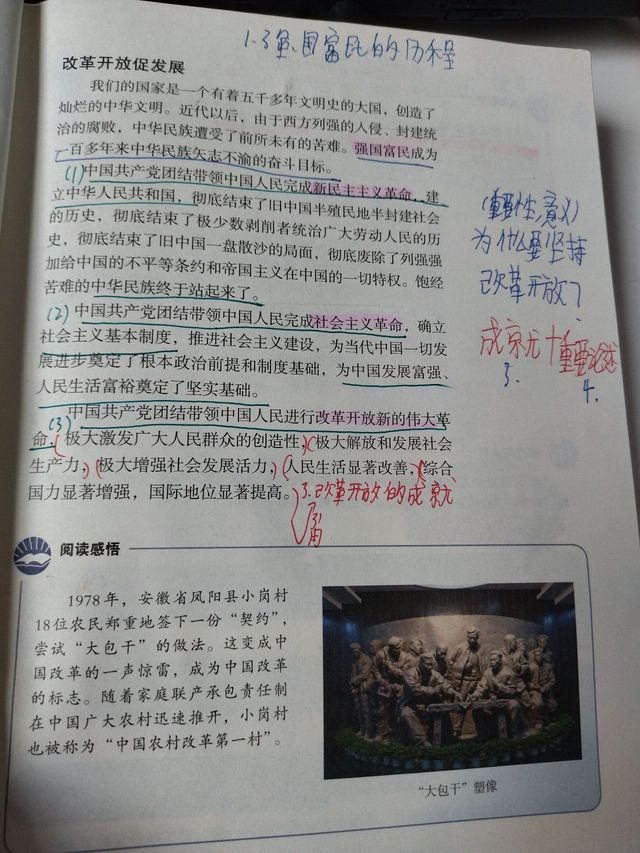 1-3强国富民的历程
改革开放促发展
我们的国家是一个有着五千多年文明史的大国，创造了
灿烂的中华文明。近代以后，由于西方列强的入侵、封建统
治的腐败，中华民族遭受了前所未有的苦难。强国富民成为
一百多年来中华民族矢志不渝的奋斗目标。
(1)中国共产党团结带领中国人民完成新民主主义革命，建
立中华人民共和国，彻底结束了旧中国半殖民地半封建社会
的历史，彻底结束了极少数剥削者统治广大劳动人民的历
史，彻底结束了旧中国一盘散沙的局面，彻底废除了列强强
加给中国的不平等条约和帝国主义在中国的一切特权。饱经
苦难的中华民族终于站起来了。
(2)中国共产党团结带领中国人民完成社会主义革命，确立
社会主义基本制度，推进社会主义建设，为当代中国一切发
展进步奠定了根本政治前提和制度基础，为中国发展富强、
人民生活富裕奠定了坚实基础。
(3)中国共产党团结带领中国人民进行改革开放新的伟大革
命，极大激发广大人民群众的创造性，极大解放和发展社会
生产力，极大增强社会发展活力，人民生活显著改善，综合
国力显著增强，国际地位显著提高。
3.改革开放的成就
(重要性、意义)
为什么要坚持
改革开放？
3.
4.
阅读感悟
1978年，安徽省凤阳县小岗村
18位农民郑重地签下一份“契约”，
尝试“大包干”的做法。这变成中
国改革的一声惊雷，成为中国改革
的标志。随着家庭联产承包责任制
在中国广大农村迅速推开，小岗村
也被称为“中国农村改革第一村”。
“大包干”塑像